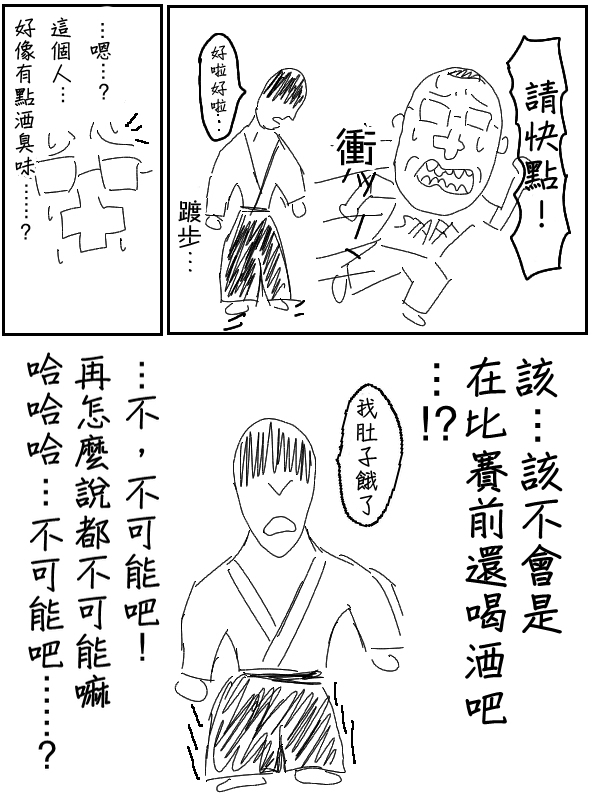 請快點！
衝
STAFF
好啦好啦…
踱步…
…嗯…？
這個人…
好像有點酒臭味……？
該…該不會是
在比賽前還喝酒吧
…!?
我肚子餓了
…不，不可能吧！
再怎麼說都不可能嘛
哈哈哈…不可能吧……？